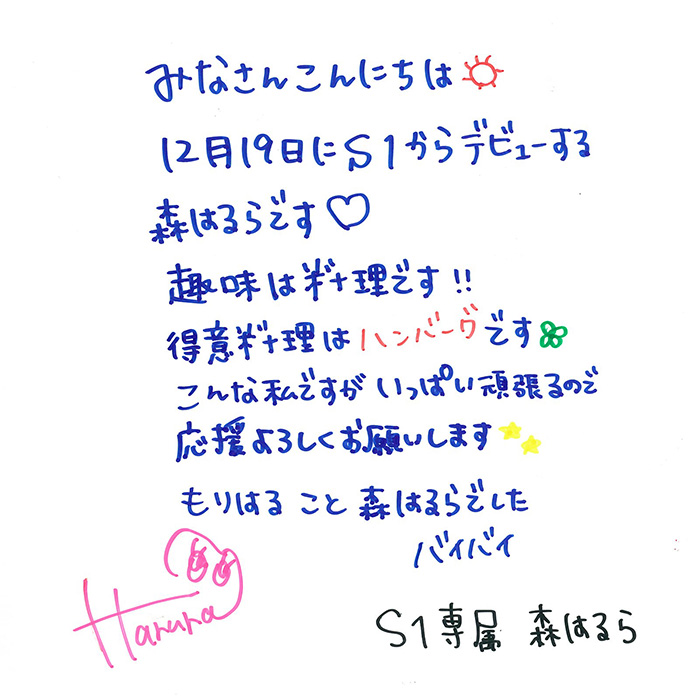 みなさんこんにちは
12月19日にS1からデビューする
森はるらです♡
趣味は料理です!!
得意料理はハンバーグです
こんな私ですが いっぱい頑張るので
応援よろしくお願いします
もりはること森はるらでした
バイバイ
Harura
S1専属 森はるら